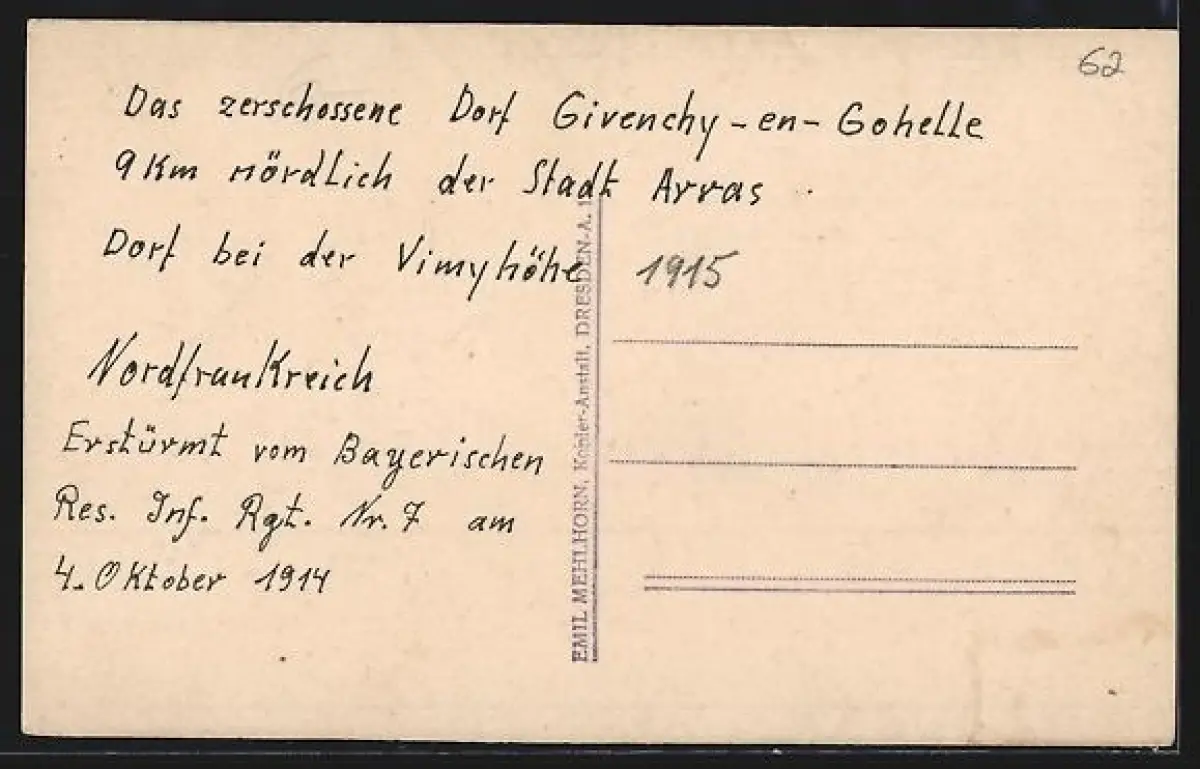 62
Das zerschossene Dorf Givenchy-en-Gohelle
9 Km nördlich der Stadt Arras
Dorf bei der Vimyhöhe 1915
Nordfrankreich
Erstürmt vom Bayerischen
Res. Inf. Rgt. Nr. 7 am
4. Oktober 1914
EMIL MEHLHORN, Kopier-Anstalt, DRESDEN-A.